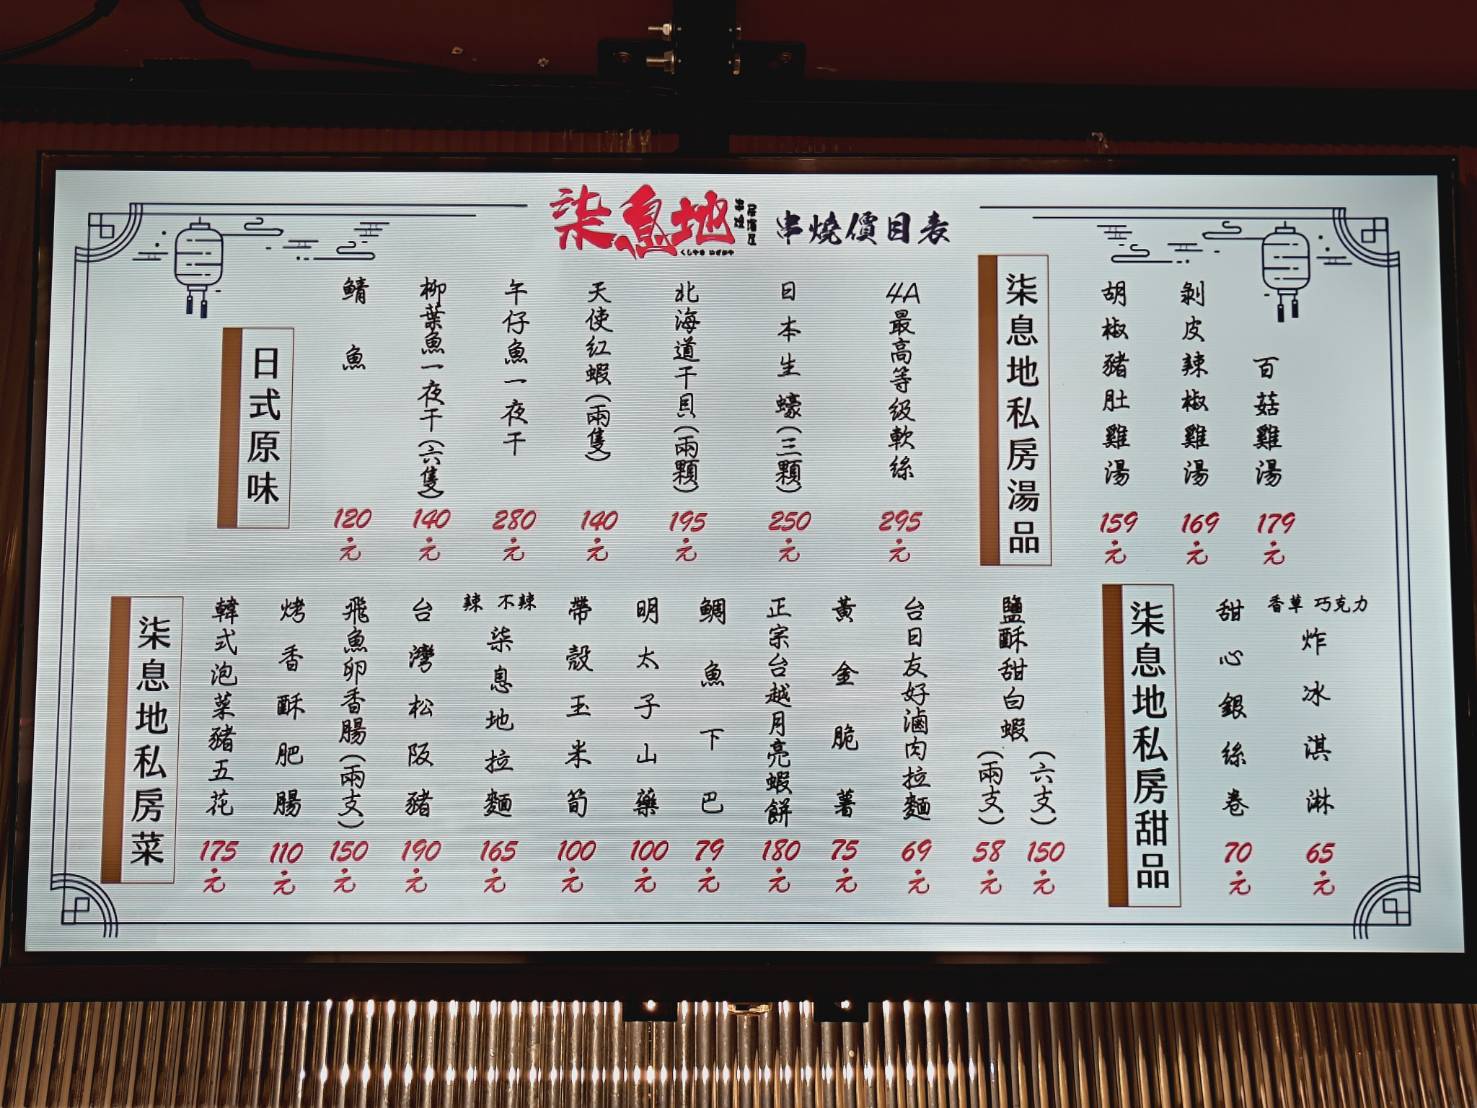 柒息地 串燒 居酒屋 串燒價目表
日式原味
鯖魚 120元
柳葉魚一夜干(六隻) 140元
午仔魚一夜干 280元
天使紅蝦(兩隻) 140元
北海道干貝(兩顆) 195元
日本生蠔(三顆) 250元
4A最高等級軟絲 295元
柒息地私房湯品
胡椒豬肚雞湯 159元
剝皮辣椒雞湯 169元
百菇雞湯 179元
柒息地私房菜
韓式泡菜豬五花 175元
烤香酥肥腸 110元
飛魚卵香腸(兩支) 150元
台灣松阪豬 190元
辣 不辣
柒息地拉麵 165元
帶殼玉米筍 100元
明太子山藥 100元
鯛魚下巴 79元
正宗台越月亮蝦餅 180元
黃金脆薯 75元
台日友好滷肉拉麵 69元
鹽酥甜白蝦
(兩支) 58元
(六支) 150元
柒息地私房甜品
甜心銀絲卷 70元
香草 巧克力
炸冰淇淋 65元